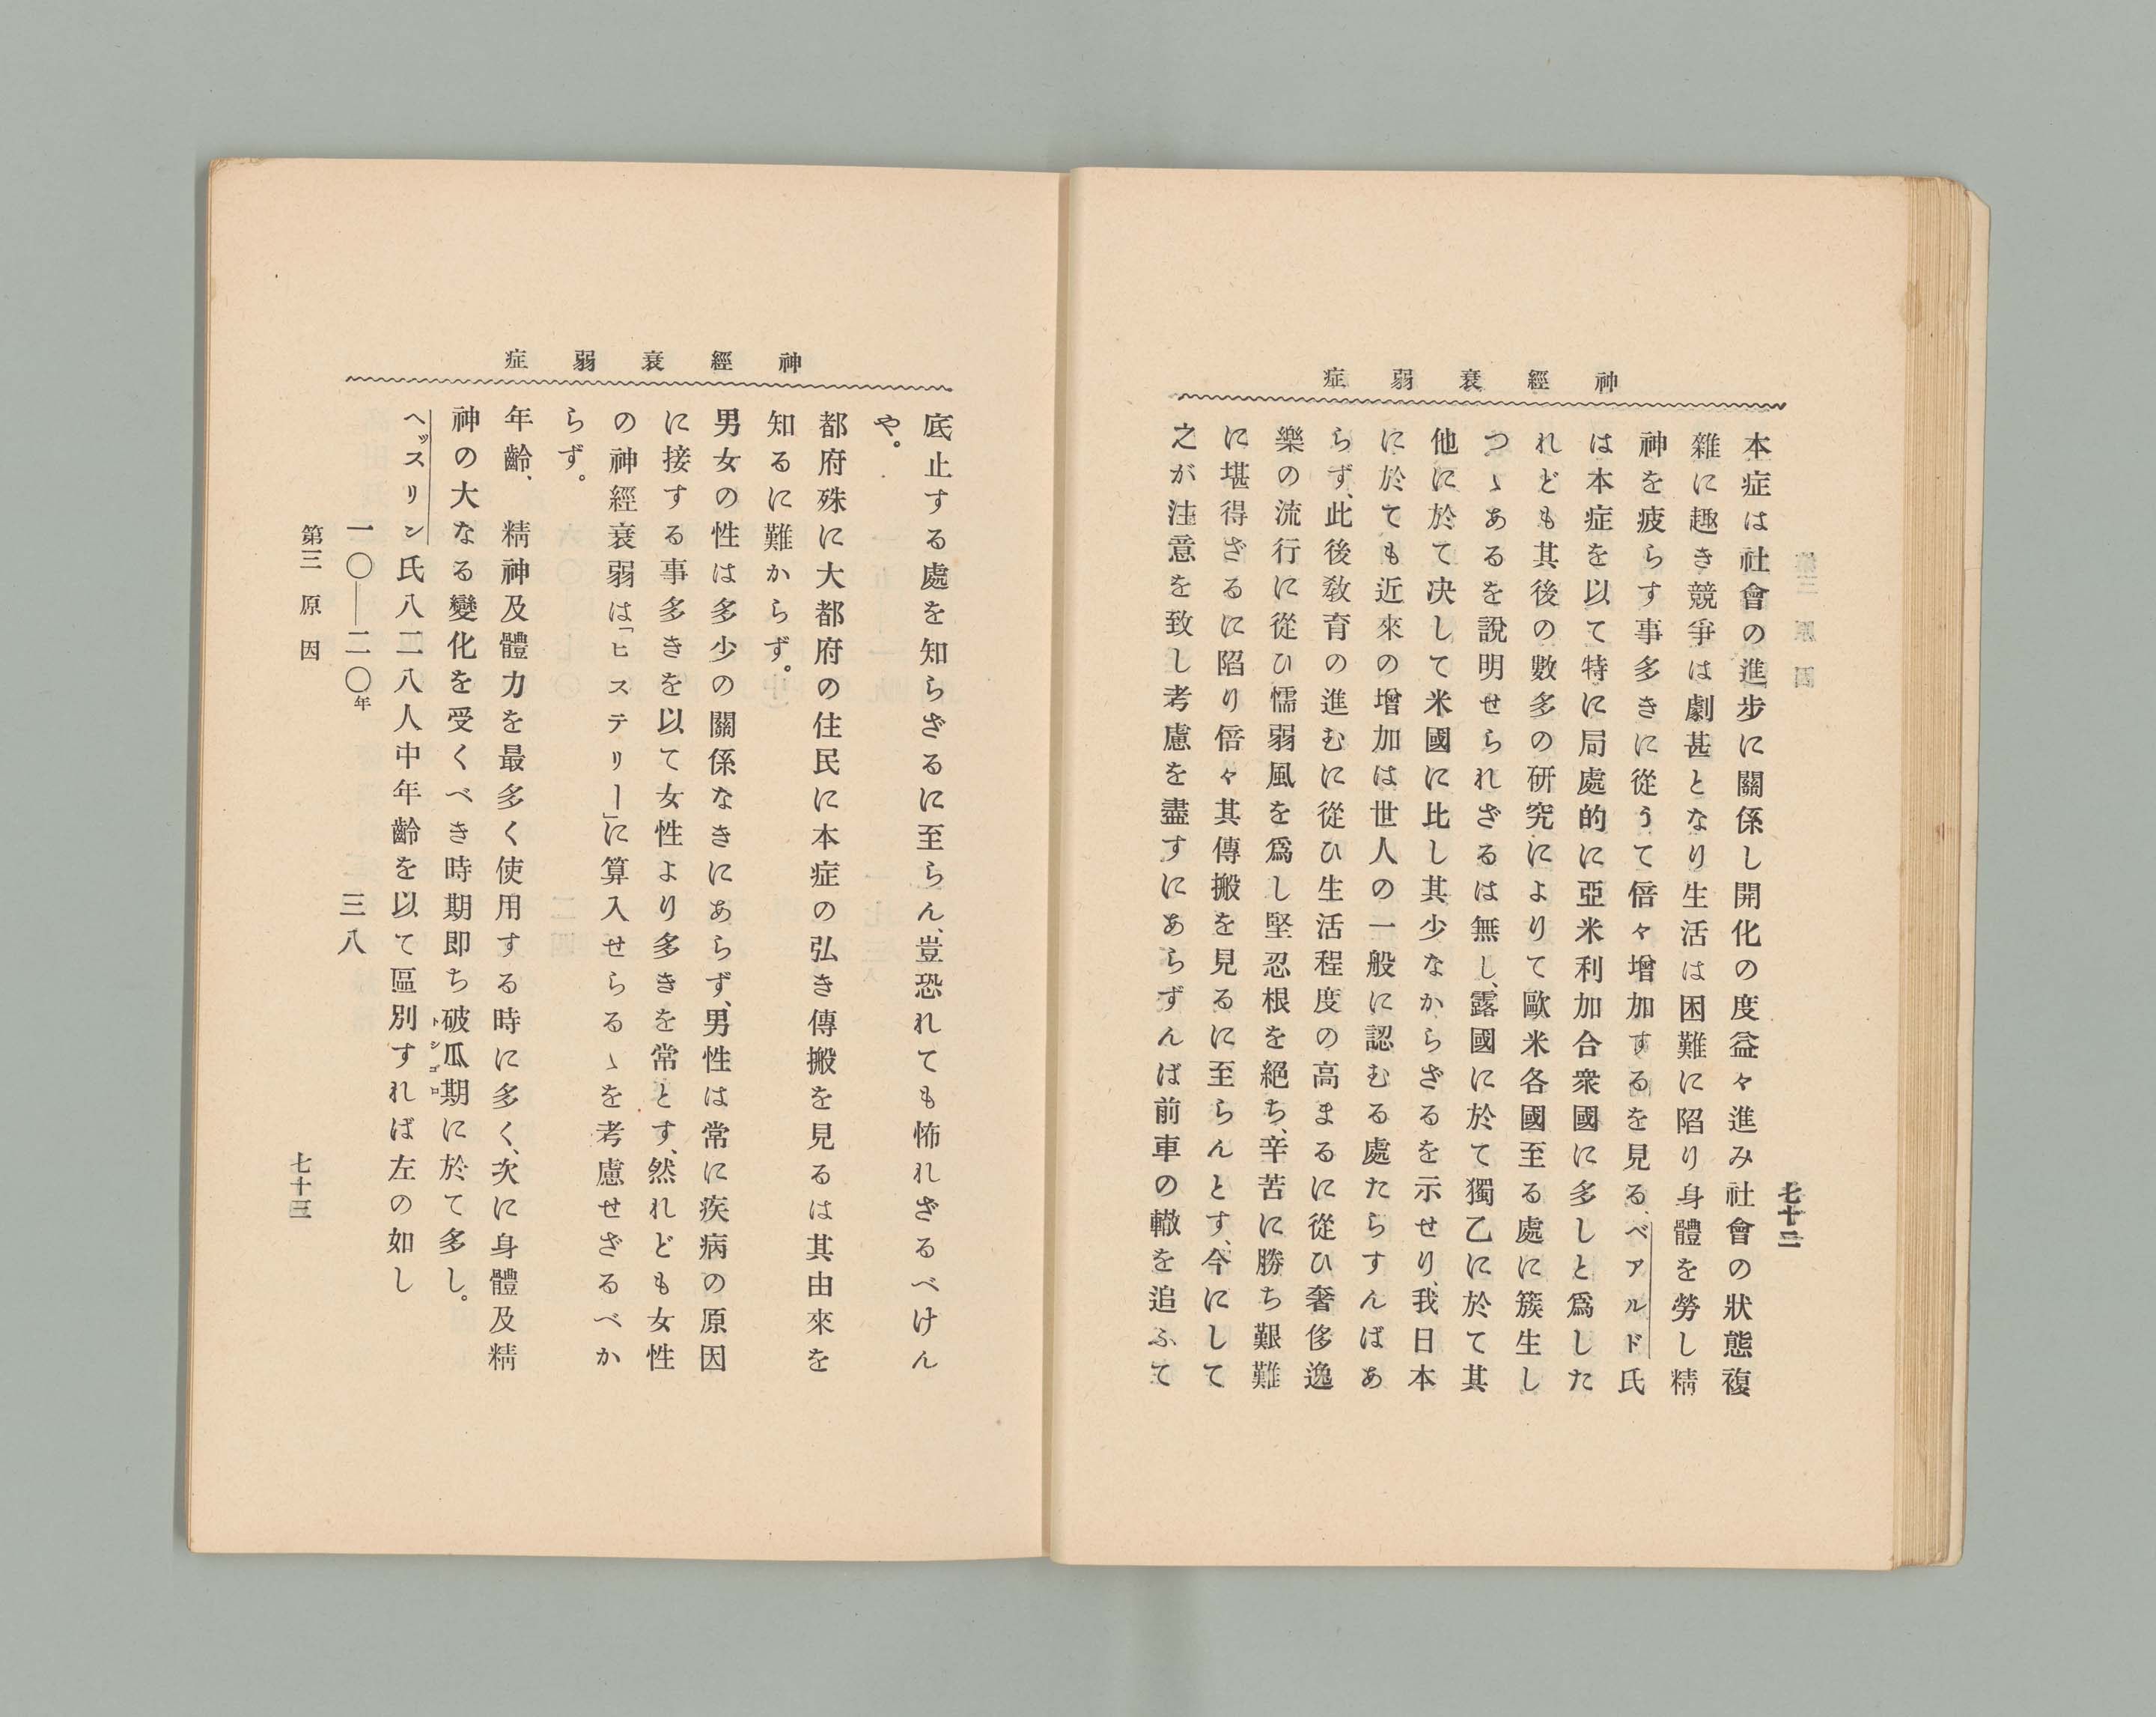 神經衰弱症
七十二
本症は社會の進步に關係し開化の度益々進み社會の狀態複
雜に趣き競爭は劇甚となり生活は困難に陷り身體を勞し精
神を疲らす事多きに從うて倍々增加するを見る、ベアルド氏
は本症を以て特に局處的に亞米利加合衆國に多しと爲した
れども其後の數多の硏究により て歐米各國至る處に簇生し
つゝあるを說明せられざるは無し、露國に於て獨乙に於て其
他に於て决して米國に比し其少なからざるを示せり、我日本
に於ても近來の增加は世人の一般に認むる處たらすんばあ
らず、此後敎育の進むに從ひ生活程度の高まるに從ひ奢侈逸
樂の流行に從ひ懦弱風を爲し堅忍根を絕ち、辛苦に勝ち艱難
に堪得ざるに陷り倍々其傳搬を見るに至らんとす、今にして
之が注意を致し考慮を盡すにあらずんば前車の轍を追ふて
神經衰弱症
底止する處を知らざるに至らん、豈恐れても怖れざるべけん
や。
都府殊に大都府の住民に本症の弘き傳搬を見るは其由來を
知るに難からず。
男女の性は多少の關係なきにあらず、男性は常に疾病の原因
に接する事多きを以て女性より多きを常とす、然れども女性
の神經衰弱は「ヒステリー」に算入せらるゝを考慮せざるべか
らず。
年齡、 精神及體力を最多く使用する時に多く、次に身體及精
神の大なる變化を受くべき時期卽ち破瓜期に於て多し。
トシゴロ
ヘッスリン氏八二八人中年齡を以て區別すれば左の如し
一〇―二〇年 三八
第三 原因
七十三